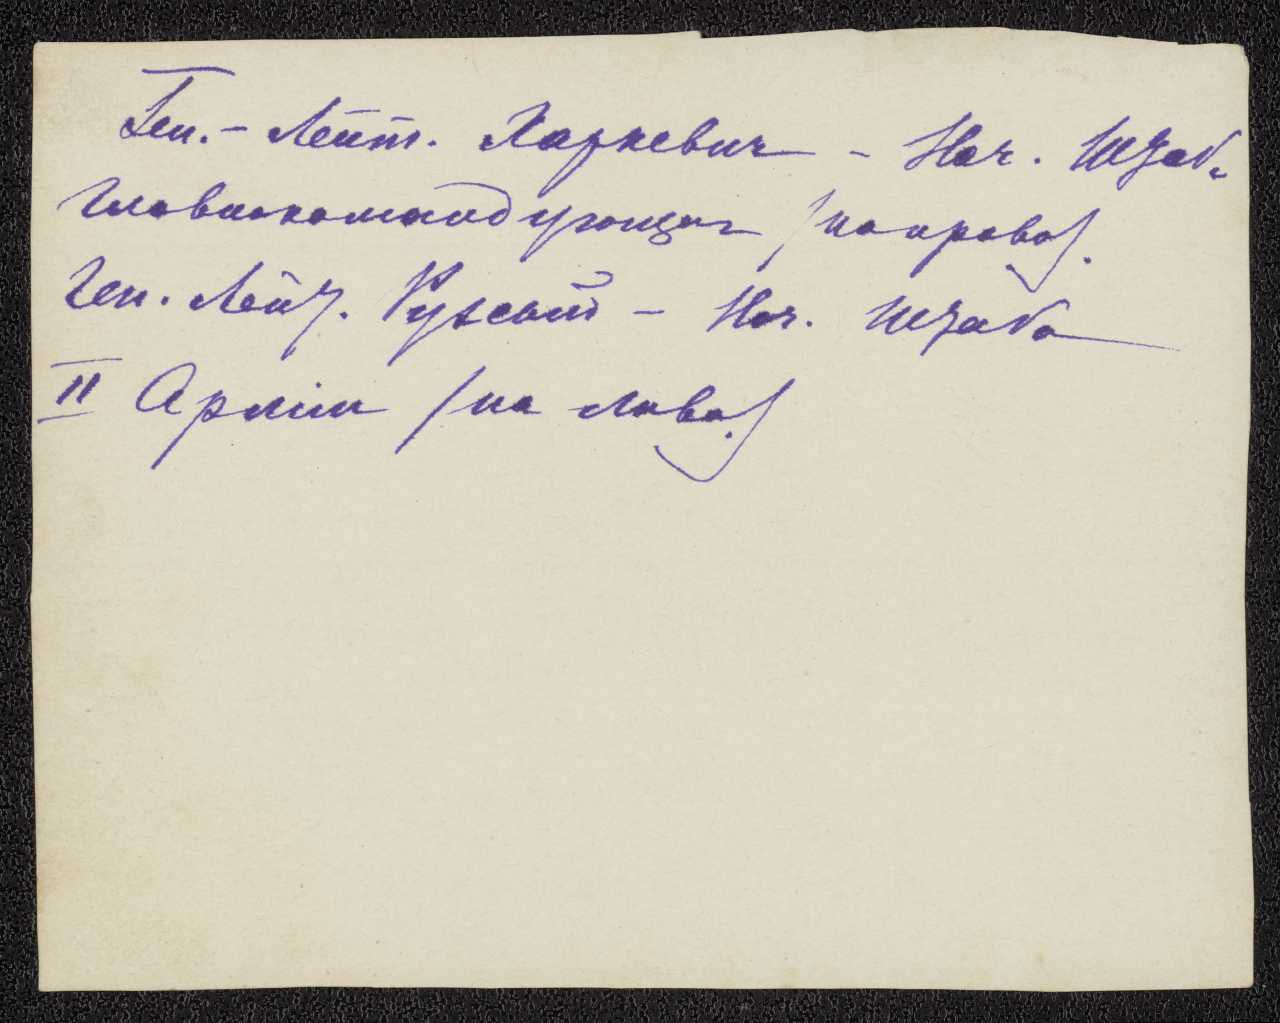 Ген.- Лейт. Харкевич - Нач. Штаб.
Главнокомандующаг (направо).
Ген. Лейт. Рузской - Нач. Штаба
II Армiи (на лево.)